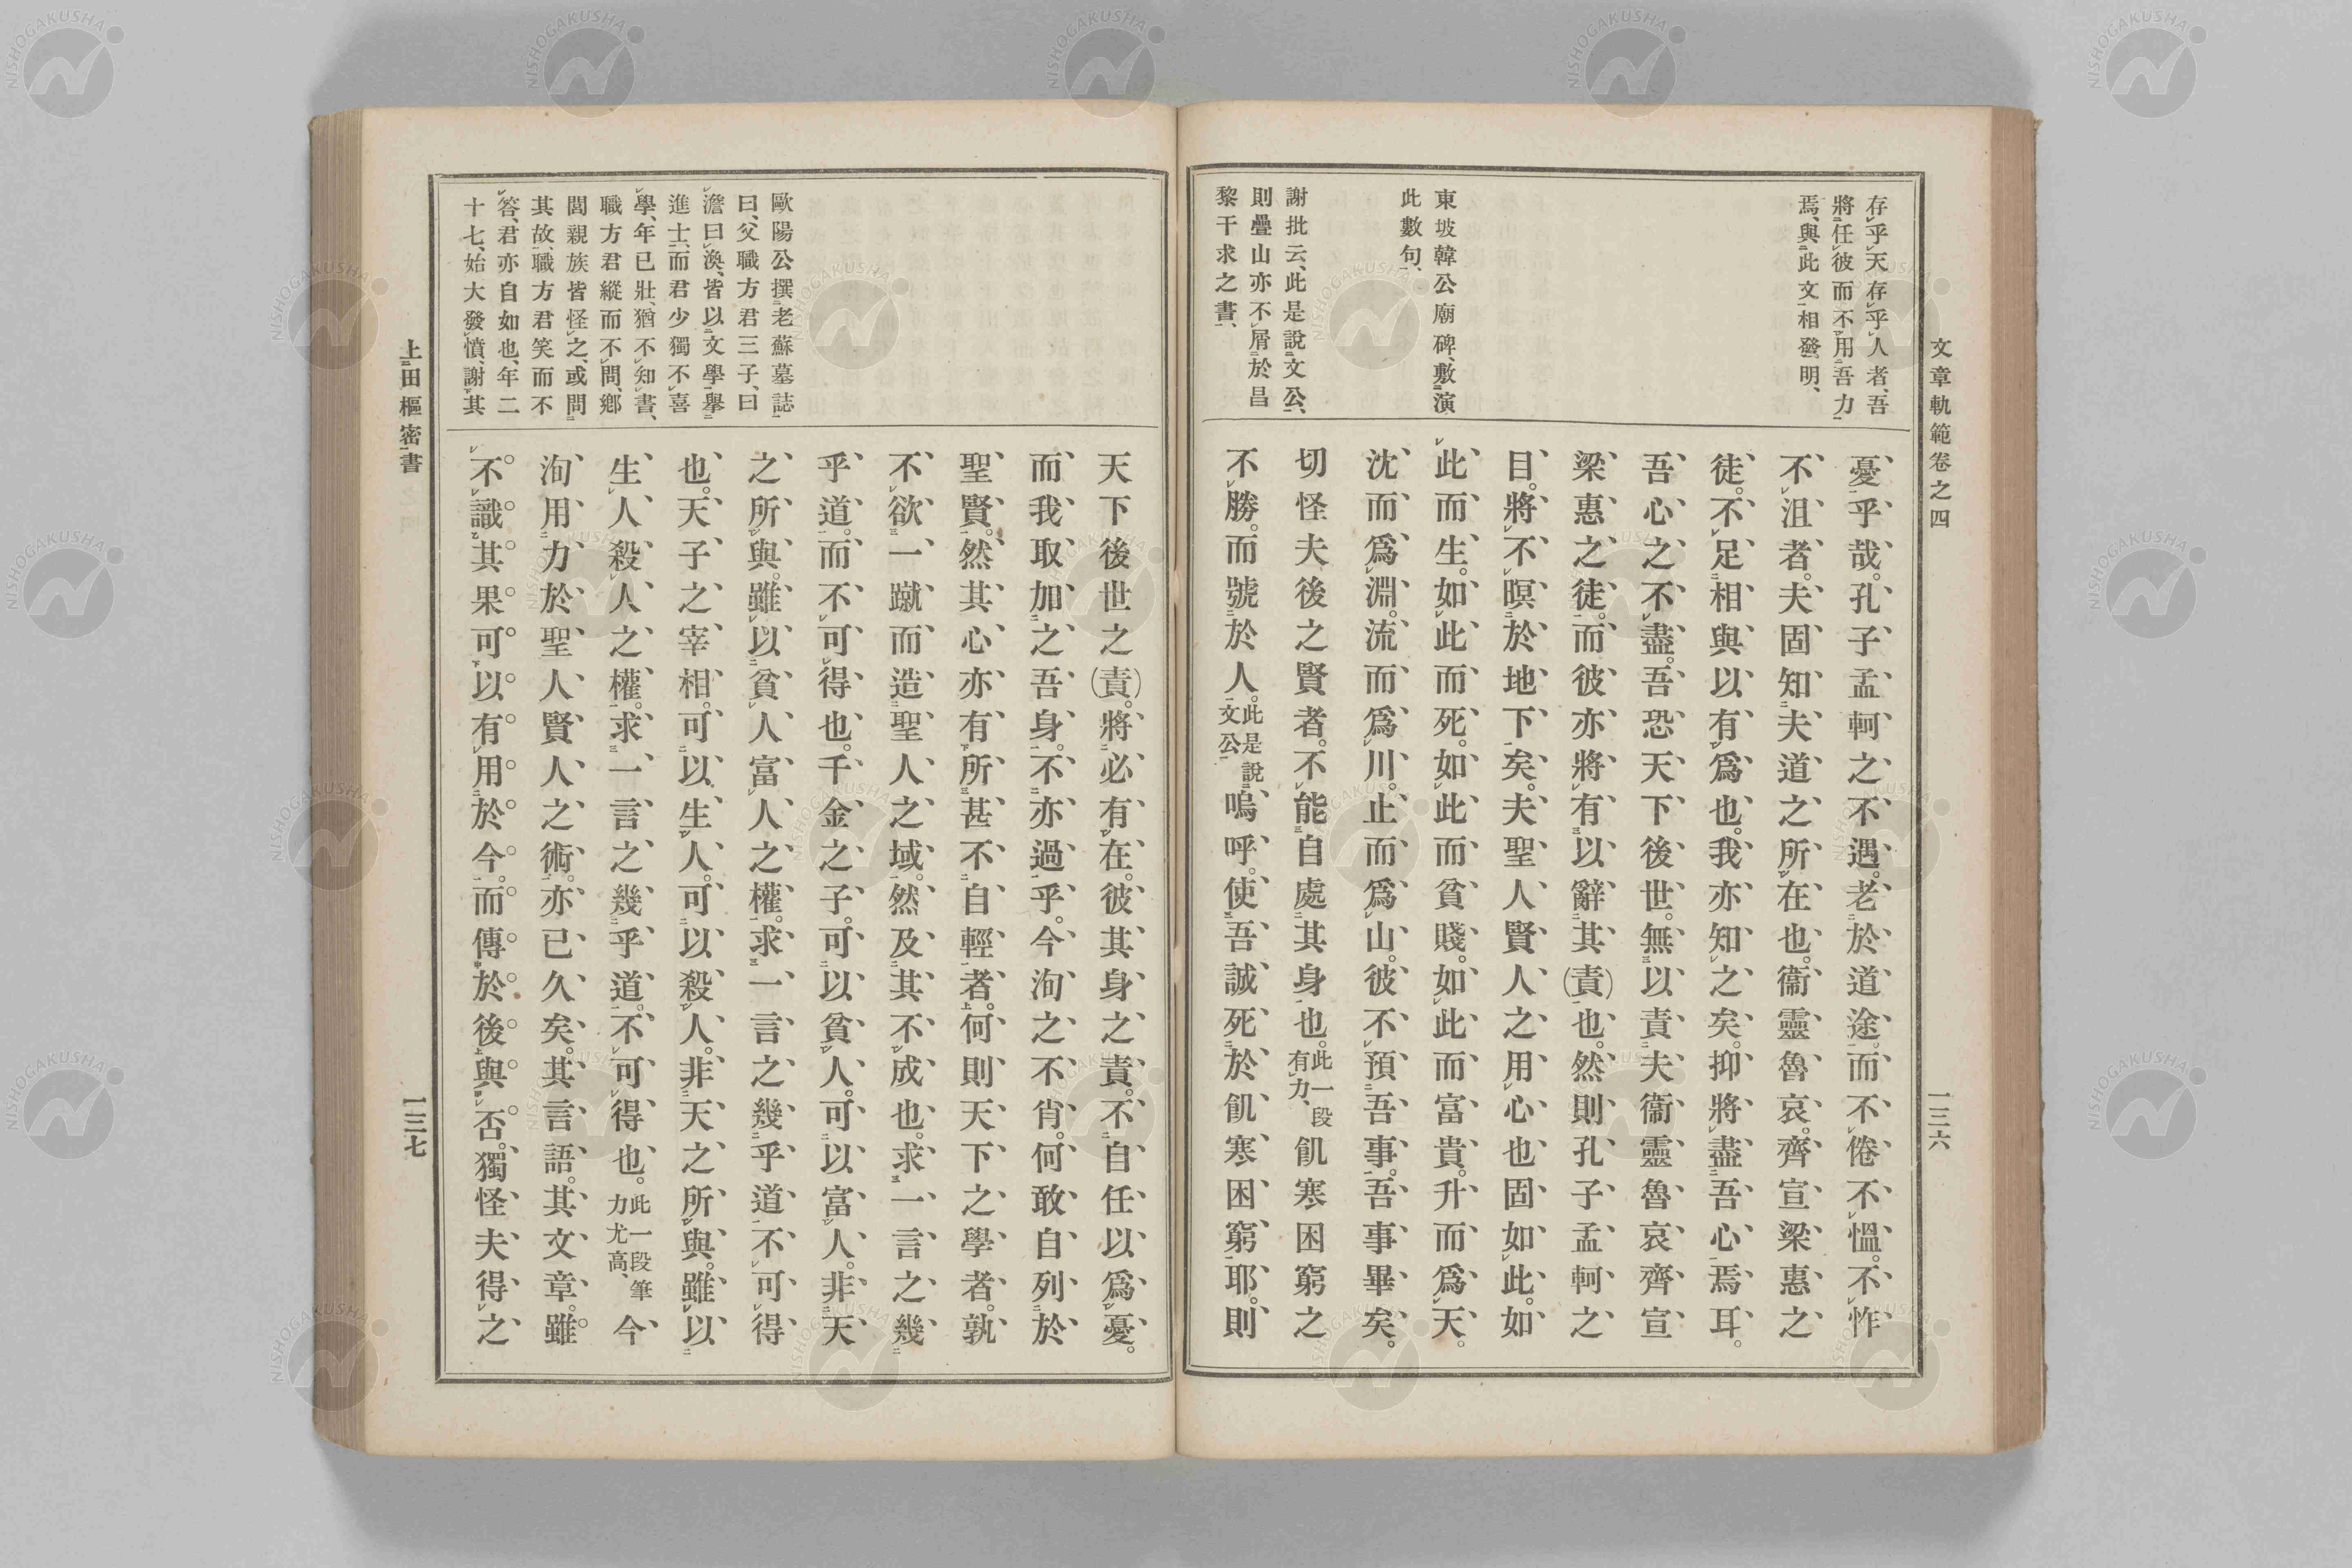 文章軌範卷之四
一三六
存乎天存乎人者、吾
將任彼而不用吾力
焉、與此文相發明、
東坡韓公廟碑、敷演
此數句、
謝批云、此是說文公、
則疊山亦不屑於昌
黎干求之書、
憂乎哉。孔子孟軻之不遇。老於道途。而不倦不慍。不怍
不沮者。夫固知夫道之所在也。衞靈魯哀。齊宣梁惠之
徒。不足相與以有爲也。我亦知之矣。抑將盡吾心焉耳。
吾心之不盡。吾恐天下後世。無以責夫衞靈魯哀齊宣
梁惠之徒。而彼亦將有以辭其(責)也。然則孔子孟軻之
目。將不暝於地下矣。夫聖人賢人之用心也固如此。如
此而生。如此而死。如此而貧賤。如此而富貴。升而爲天。
沈而爲淵。流而爲川。止而爲山。彼不預吾事。吾事畢矣。
切怪夫後之賢者。不能自處其身也。此一段有力、飢寒困窮之
不勝。而號於人。此是說文公嗚呼。使吾誠死於飢寒困窮耶。則
歐陽公撰老蘇墓誌
曰、父職方君三子、曰
澹曰渙、皆以文學擧
進士、而君少獨不喜
學、年已壯、猶不知書、
職方君縱而不問、鄕
閭親族皆怪之、或問
其故、職方君笑而不
答、君亦自如也、年二
十七、始大發憤、謝其
天下後世之(責)。將必有在。彼其身之責。不自任以爲憂。
而我取加之吾身。不亦過乎。今洵之不肖。何敢自列於
聖賢。然其心亦有所甚不自輕者。何則天下之學者。孰
不欲一蹴而造聖人之域。然及其不成也。求一言之幾
乎道。而不可得也。千金之子。可以貧人。可以富人。非天
之所與。雖以貧人富人之權。求一言之幾乎道不可得
也。天子之宰相。可以生人。可以殺人。非天之所與。雖以
生人殺人之權。求一言之幾乎道。不可得也。此一段筆力尤高、今
洵用力於聖人賢人之術。亦已久矣。其言語。其文章。雖
不識其果可以有用於今。而傳於後與否。獨怪夫得之
上田樞密書
一三七